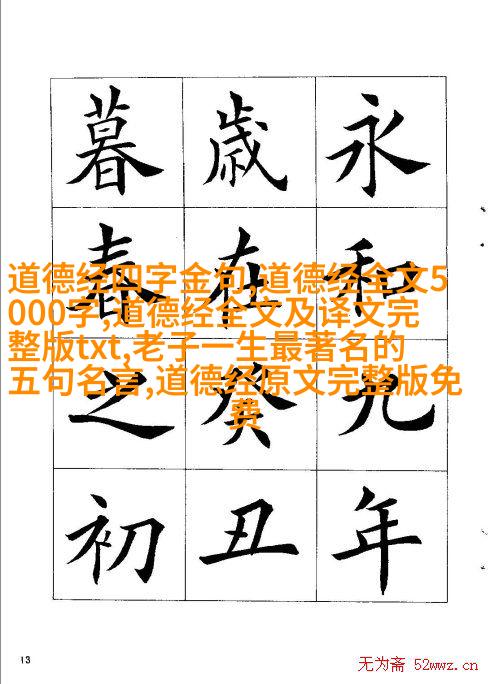 永和九年
歲在癸丑
暮春之初
道德经四字金句,道德经全文5
000字,道德经全文及译文完
整版txt,老子一生最著名的
五句名言,道德经原文完整版免
费
13
无为斋 52wwz.cn